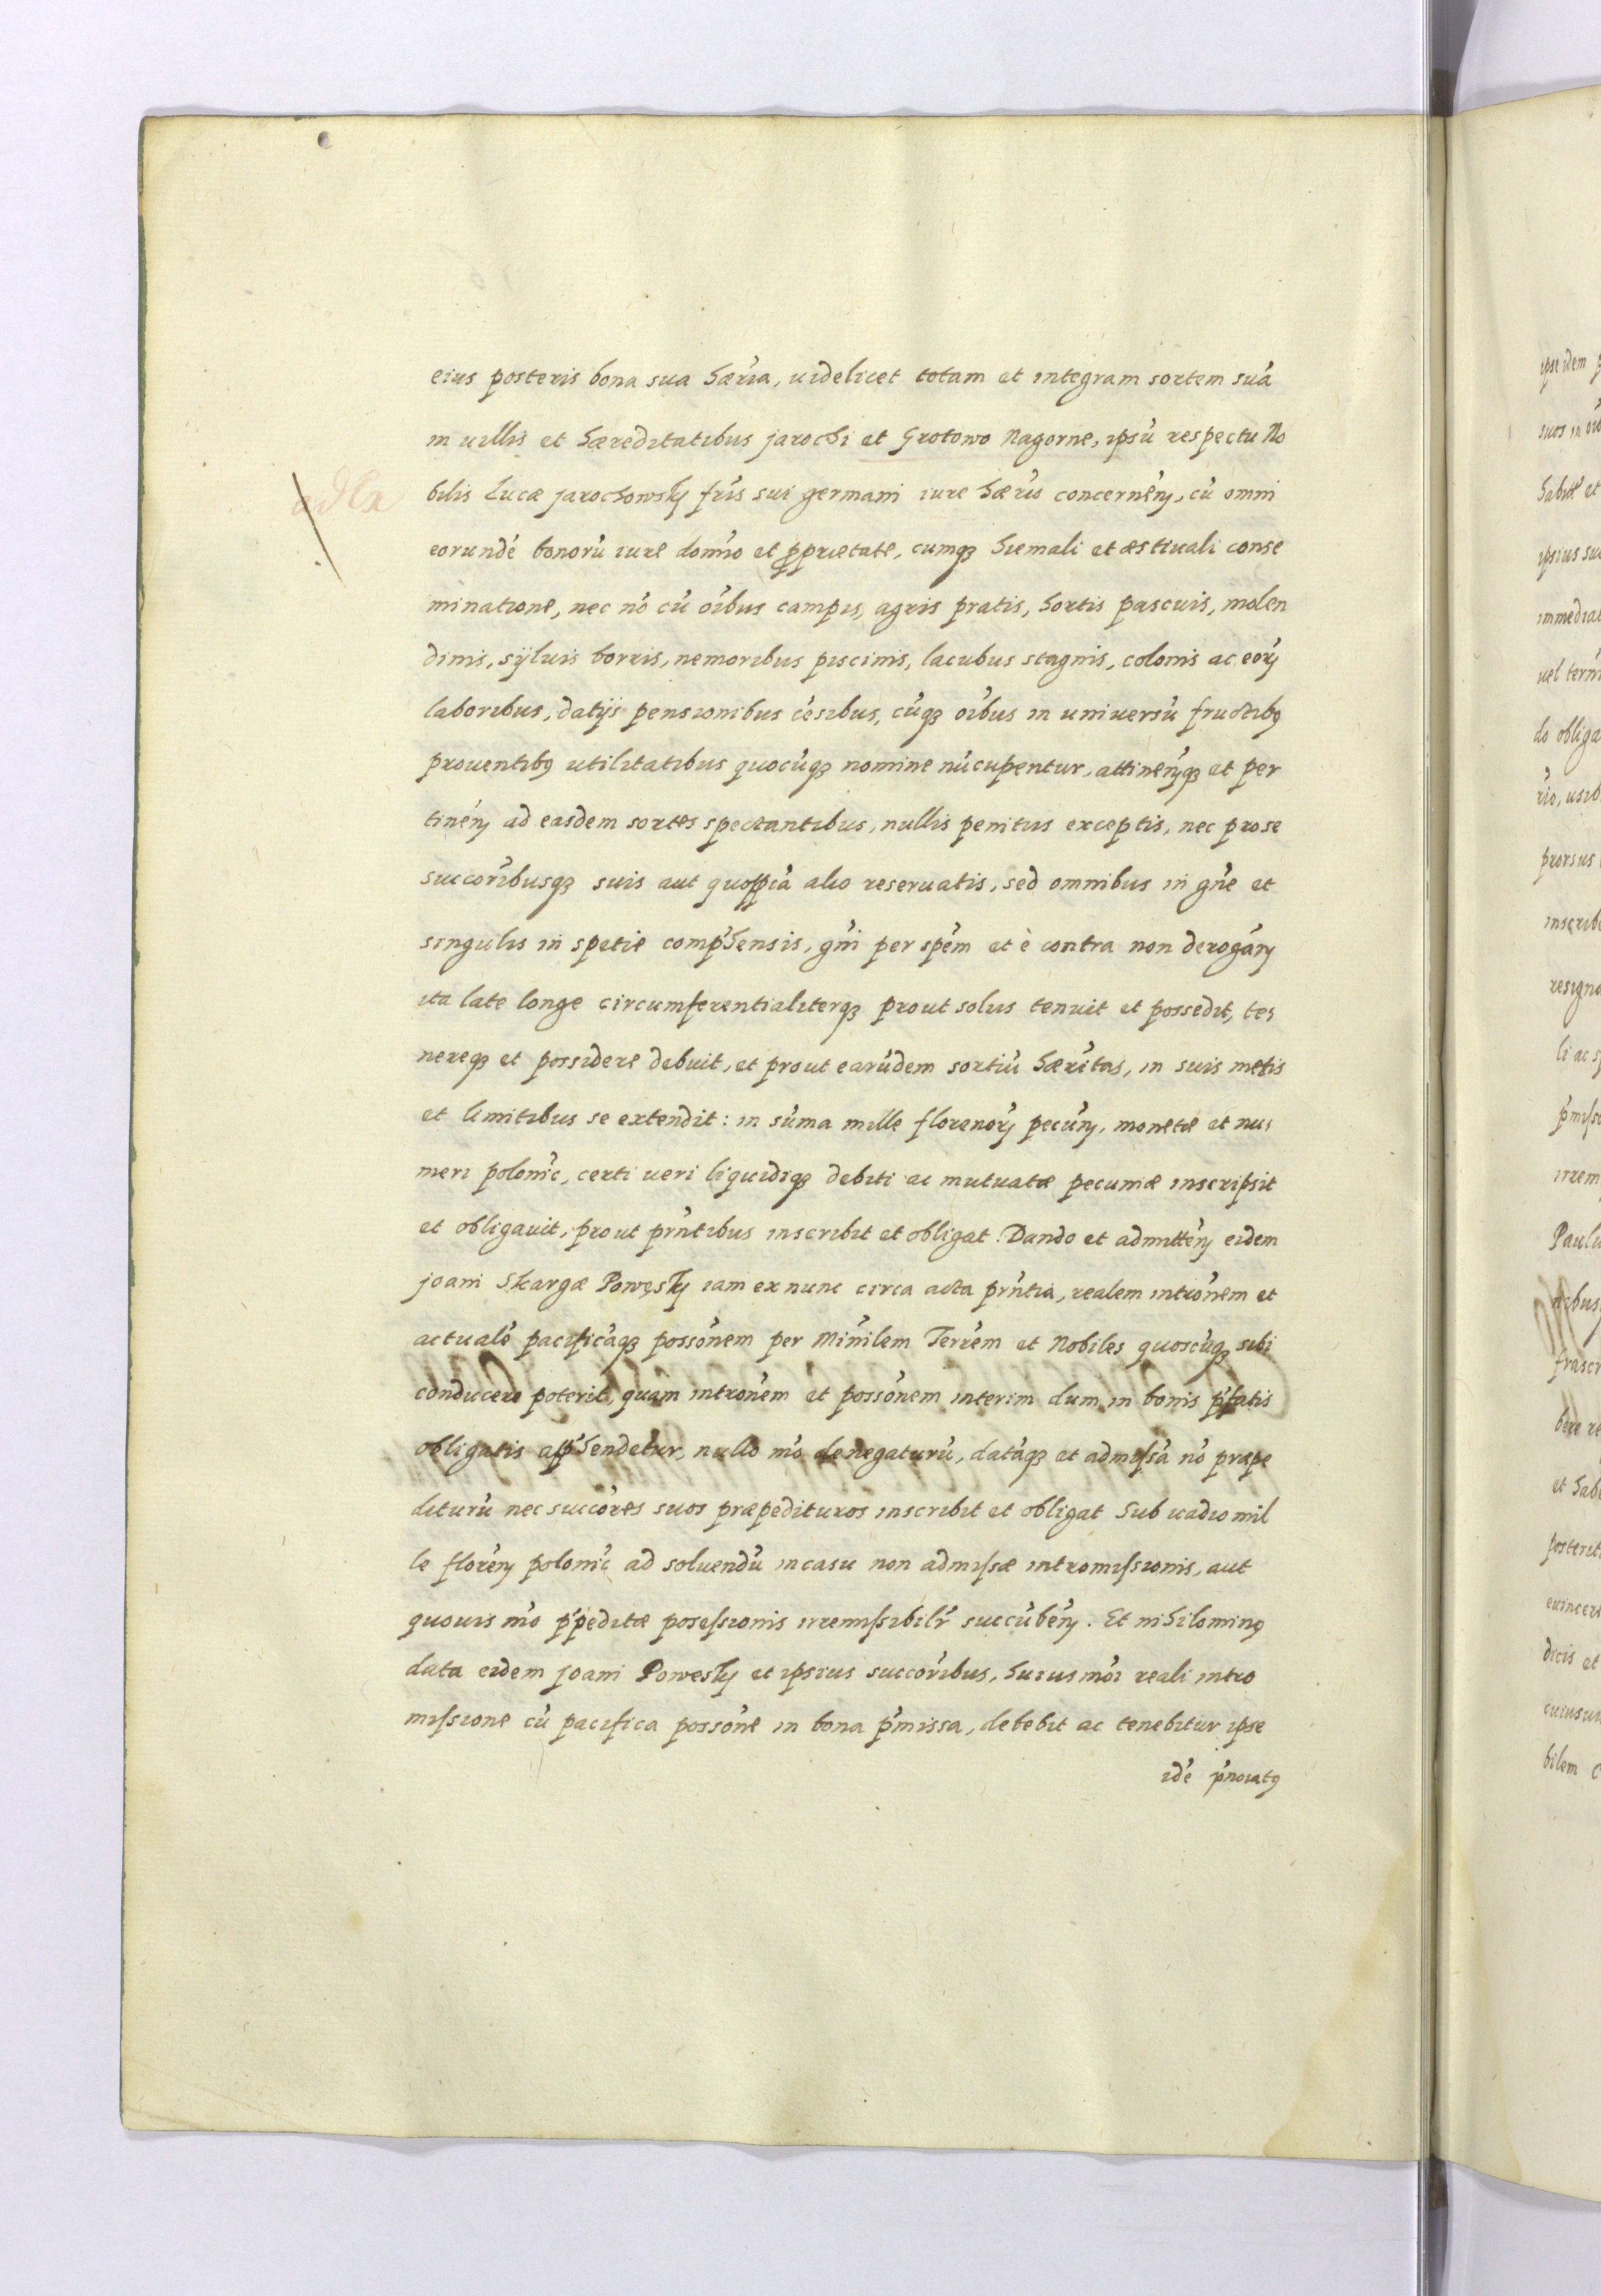 eius posteris bona sua hær̃ia, uidelicet totam et integram sortem suã
in uillis et hæreditatibus jarochi et Grotowo Nagorne, ipsũ respectu No
bilis Lucæ jarochowsky fr̃is sui germani iure hær̃io concerneñ, cũ omni
eorundẽ bonorũ iure domĩo et ꝓprietate, cumqꝫ hiemali et æstiuali conse
minatione, nec nõ cũ oĩbus campis, agris pratis, hortis pascuis, molen
dinis, syluis borris, nemoribus piscinis, lacubus stagnis, colonis ac eorꝫ
laboribus, datijs pensionibus cẽsibus, cũqꝫ oĩbus in uniuersũ fructibꝯ
prouentibꝯ utilitatibus quocũqꝫ nomine nũcupentur, attineñqꝫ et per
tineñ ad easdem sortes spectantibus, nullis penitus exceptis, nec pro se
succorĩbusqꝫ suis aut quoſpiã alio reseruatis, sed omnibus in gñe et
singulis in spetie comp̃hensis, gñi per spẽm et è contra non derogañ
ita late longe circumferentialiterqꝫ prout solus tenuit et possedit, te
nereqꝫ et possidere debuit, et prout earũdem sortiũ hær̃itas, in suis metis
et limitibus se extendit: in sũma mille florenorꝫ pecuñ, monetæ et nu
meri poloñic, certi ueri liquidiqꝫ debiti ac mutuatæ pecuniæ inscripsit
et obligauit, prout prñtibus inscribit et obligat. Dando et admitteñ eidem
joani Skargæ Powęsky iam ex nunc circa acta prñtia, realem intrõnem et
actualẽ pacificãqꝫ possõnem per Miñilem Terrẽm et Nobiles quoscũqꝫ sibi
conducere poterit, quam intronẽm et possõnem interim dum in bonis p̃fatis
obligatis app̃hendetur, nullo mõ denegaturũ, datãqꝫ et admiſsã nõ præpe
diturũ nec succõres suos præpedituros inscribit et obligat sub uadio mil
le floreñ poloñic ad soluendũ in casu non admiſsæ intromiſsionis, aut
quouis mõ p̃peditæ poseſsionis irremiſsibilr̃ succũbeñ. Et nihilominꝯ
data eidem joani Powesky et ipsius succorĩbus, huiusmõi reali intro
miſsione cũ pacifica possõne in bona p̃missa, debebit ac tenebitur ipse
idẽ p̃noĩatꝯ